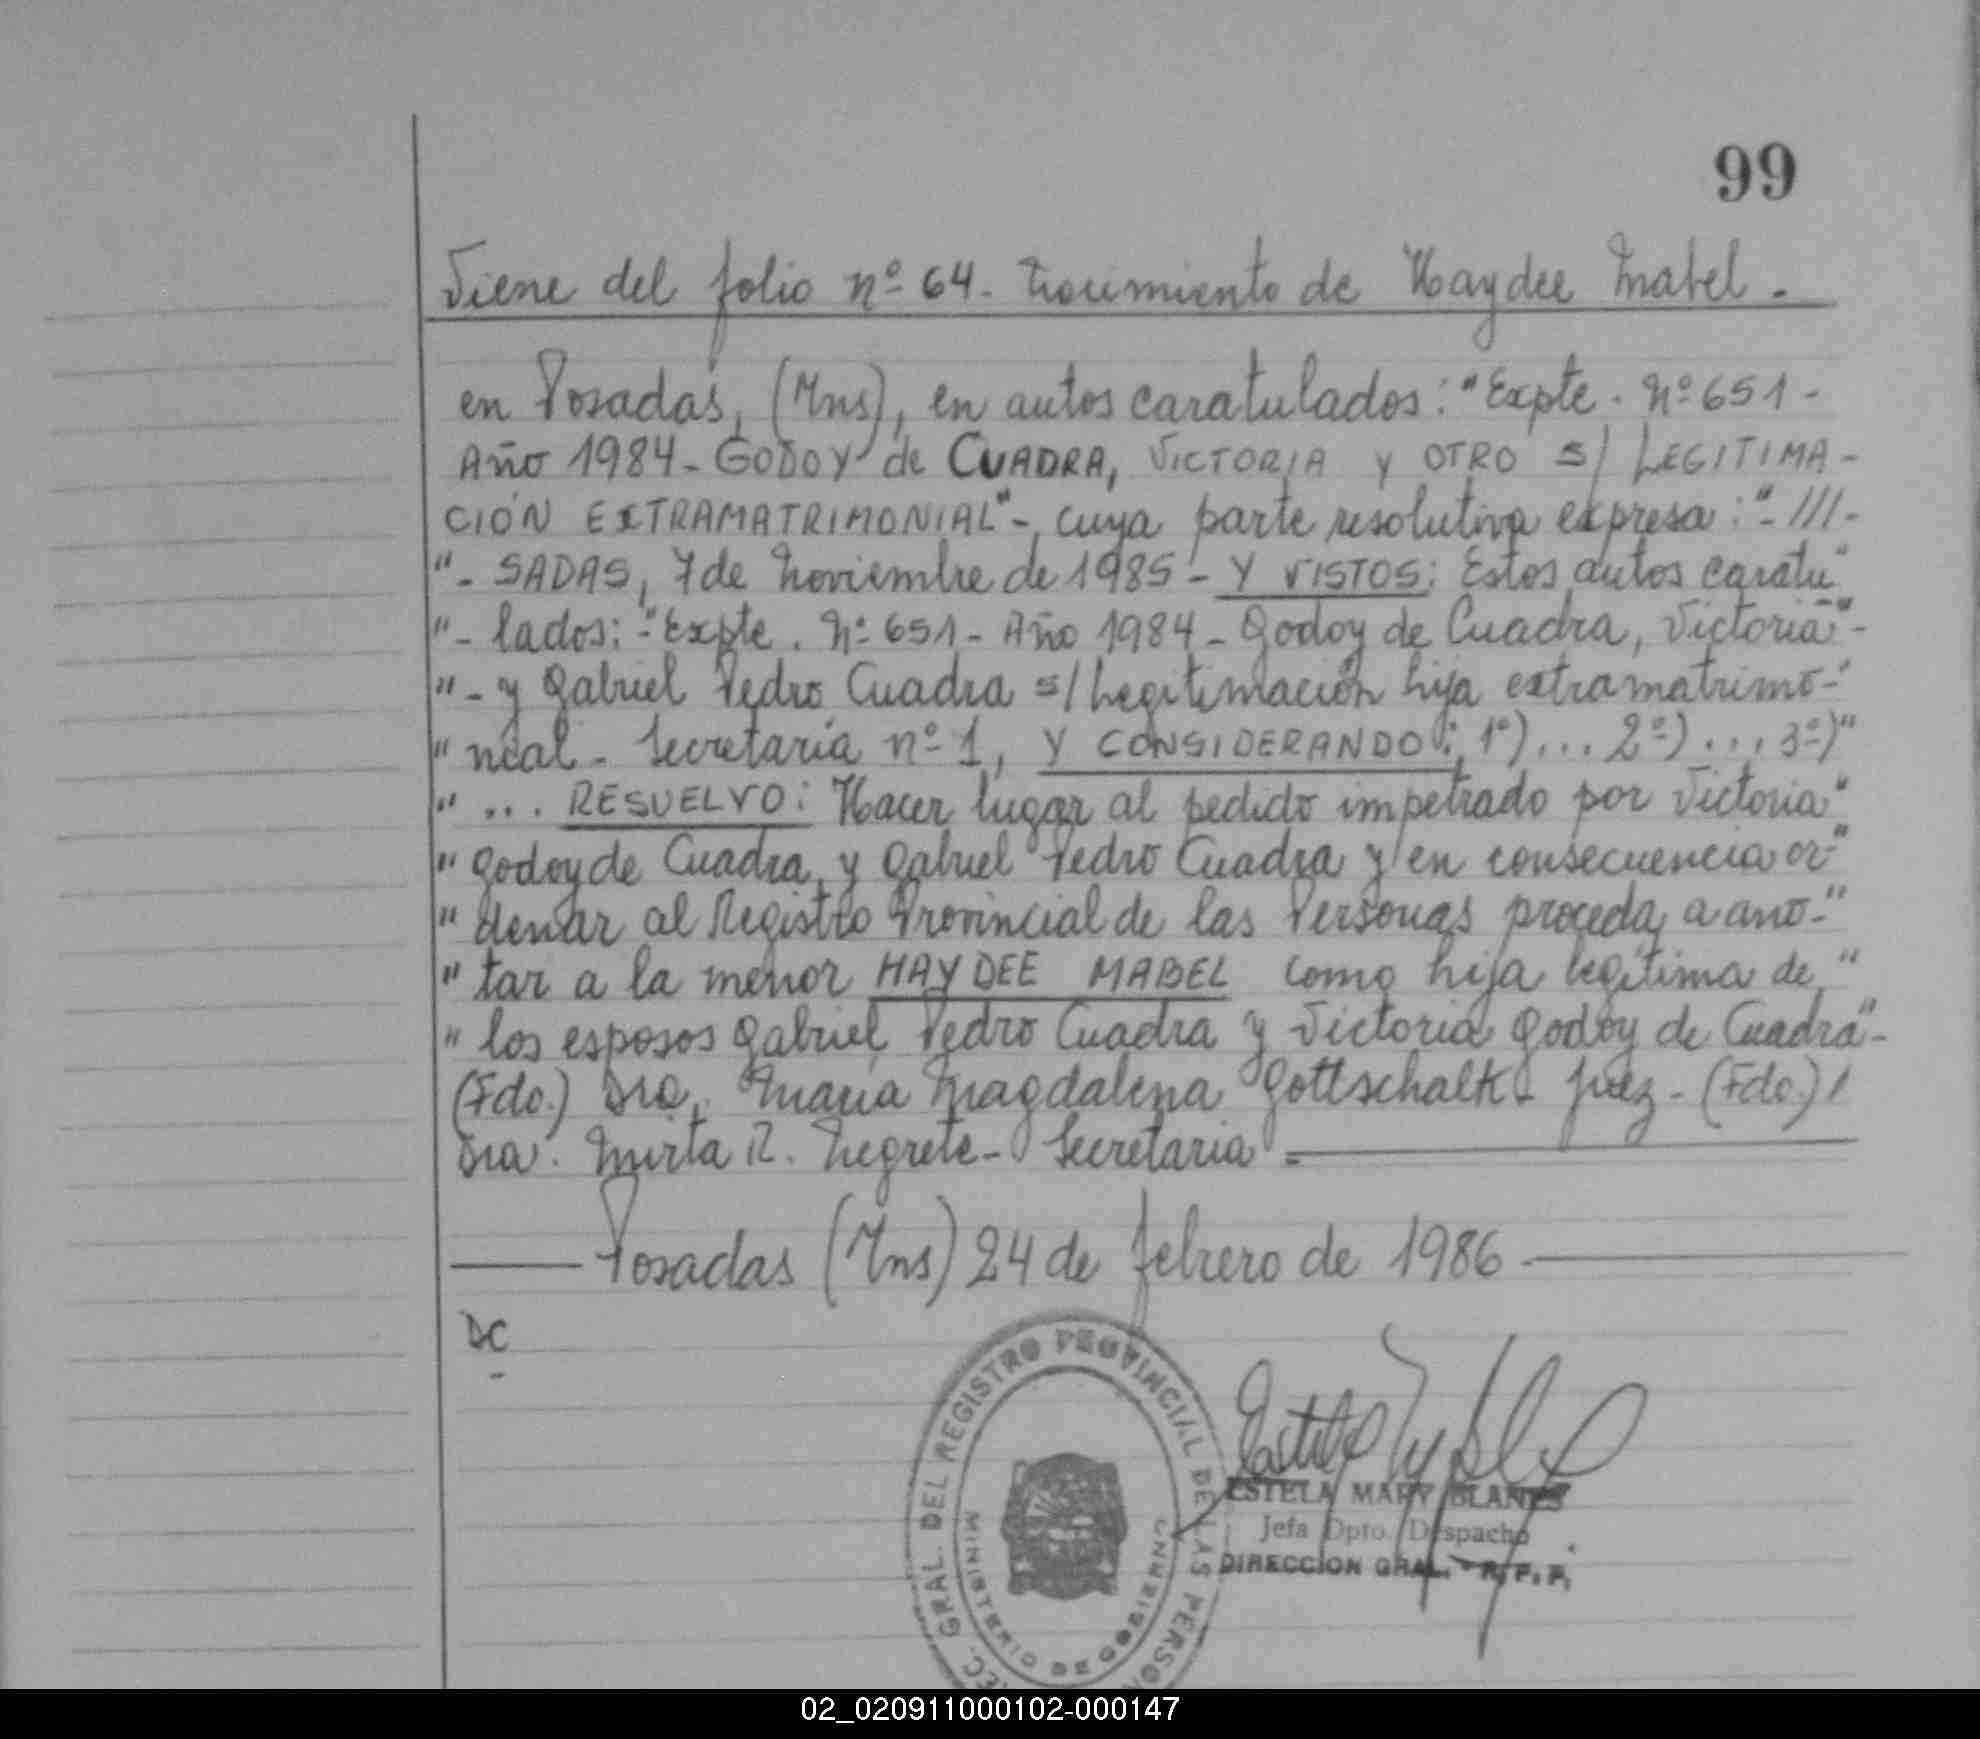 99
Viene del folio nº 64 - Nacimiento de Haydee Mabel -
en Posadas, (Mns), en autos caratulados: "Expte. Nº 651 -
Año 1984 - GODOY de CUADRA, VICTORIA Y OTRO S/ LEGITIMA-
CIÓN EXTRAMATRIMONIAL" -, cuya parte resolutiva expresa: "- ///-
"- SADAS, 7 de Noviembre de 1985 - Y VISTOS: Estos autos caratu"
"- lados: -"Expte. Nº 651 - Año 1984 - Godoy de Cuadra, Victoria"-
"- y Gabriel Pedro Cuadra s/ Legitimación hija extramatrimo-"
" nial - Secretaría nº 1, Y CONSIDERANDO: 1º)... 2º)..., 3º)"
" ... RESUELVO: Hacer lugar al pedido impetrado por Victoria"
" Godoy de Cuadra y Gabriel Pedro Cuadra y en consecuencia or-"
" denar al Registro Provincial de las Personas proceda a ano-"
" tar a la menor HAYDEE MABEL como hija legítima de "
" los esposos Gabriel Pedro Cuadra y Victoria Godoy de Cuadra"-
(Fdo.) Dra. María Magdalena Gottschalk - Juez - (Fdo.) /
Dra. Mirta R. Negrete - Secretaria -
Posadas (Mns) 24 de febrero de 1986 -
DC
GRAL. DEL REGISTRO PROVINCIAL DE LAS
MINISTERIO DE GOBIERNO
ESTELA MARY BLANES
Jefa Dpto. Despacho
DIRECCION GRAL. R. P. P.
02_020911000102-000147